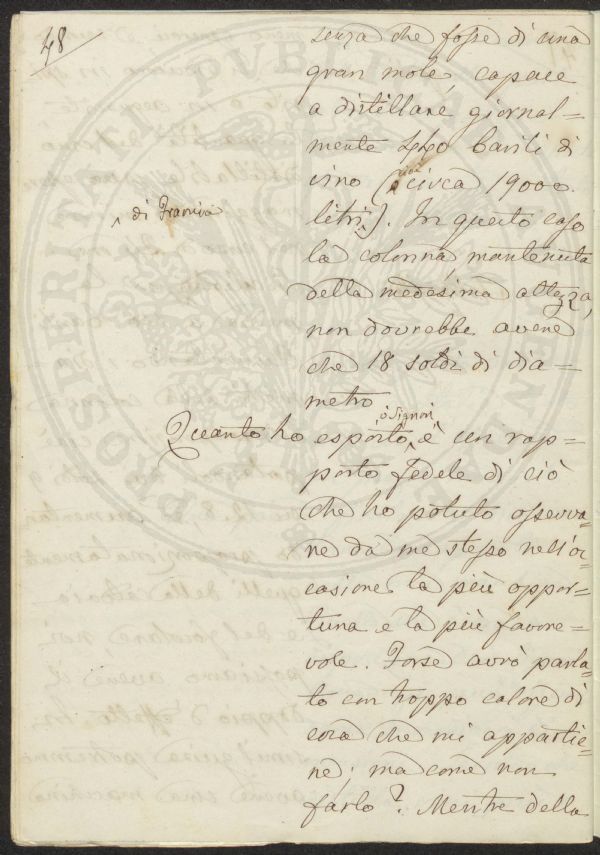 48
senza che fosse di una
gran mole, capace
a distillare giornal=
mente 440 barili di
vino (cioè circa 19000.
litri). In questo caso
^ di Francia
la colonna, mantenuta
della medesima altezza,
non dovrebbe avere
che 18 soldi di dia=
metro.
Quanto ho esposto, ò Signori, è un rap=
porto fedele di ciò
che ho potuto osserva=
re da me stesso nell'oc=
casione la più oppor=
tuna e la più favore=
vole. Forse avrò parla=
to con troppo calore di
cosa che mi appartie=
ne; ma come non
farlo? Mentre della